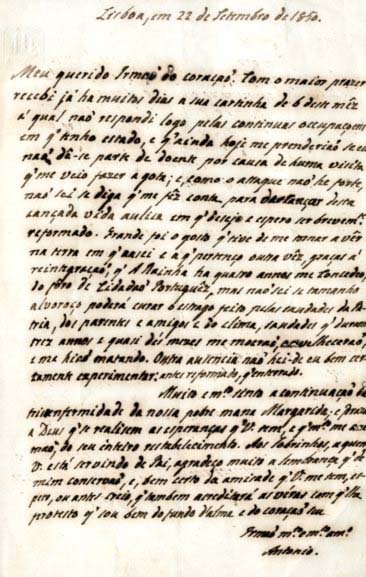 Lisboa, em 22 de Setembro de 1850.
Meu querido Irmaõ do coração. Com o maior prazer
recebi já ha muitos dias a sua cartinha de 6 deste mêz
á qual naõ respondi logo pelas continuas occupaçoens
em q' tenho estado, e q' ainda hoje me prenderiaõ se eu
naõ dê-se parte de doente por causa de huma visita
q' me veio fazer a gota; e, como o attaque naõ he forte,
naõ sei se diga q' me fêz conta, para descançar desta
cançada vida aulica em q' desejo e espero ser brevem.te
reformado. Grande foi o gosto q' tive de me tornar a vêr
na terra em q' nasci e a q' pertenço outra vêz, graças á
reintegração, q' A Rainha ha quatro annos me concedeo,
do foro de Cidadaõ Portuguêz, mas naõ sei se tamanho
alvoroço poderá curar o estrago feito pelas saudades da Pa-
tria, dos parentes e amigos e do clima, saudades q' durante
trez annos e quasi déz mezes me moeraõ,
e me hiaõ matando. Outra ausencia naõ hei-de eu bem cer-
tamente experimentar: antes reformado, q' enterrado.
Muito em.to sento a continuaçaõ da
enfermidade da nossa pobre mana Margarida; e
a Deus q' se realisem as esperanças q' V. tem, e q'
do seu inteiro restabelecimento. Aos Sobrinhos, a quem
V. está servindo de Pae, agradeço muito a lembrança q' de
mim conservaõ, e, bem certo da amisade q' V. me tem, es-
pero, ou antes creio, q' tambem acreditará as véras com q' lhe
protesto q' sou bem do fundo d'alma e do coração seu
Irmaõ m.to em.to am.te
Antonio.